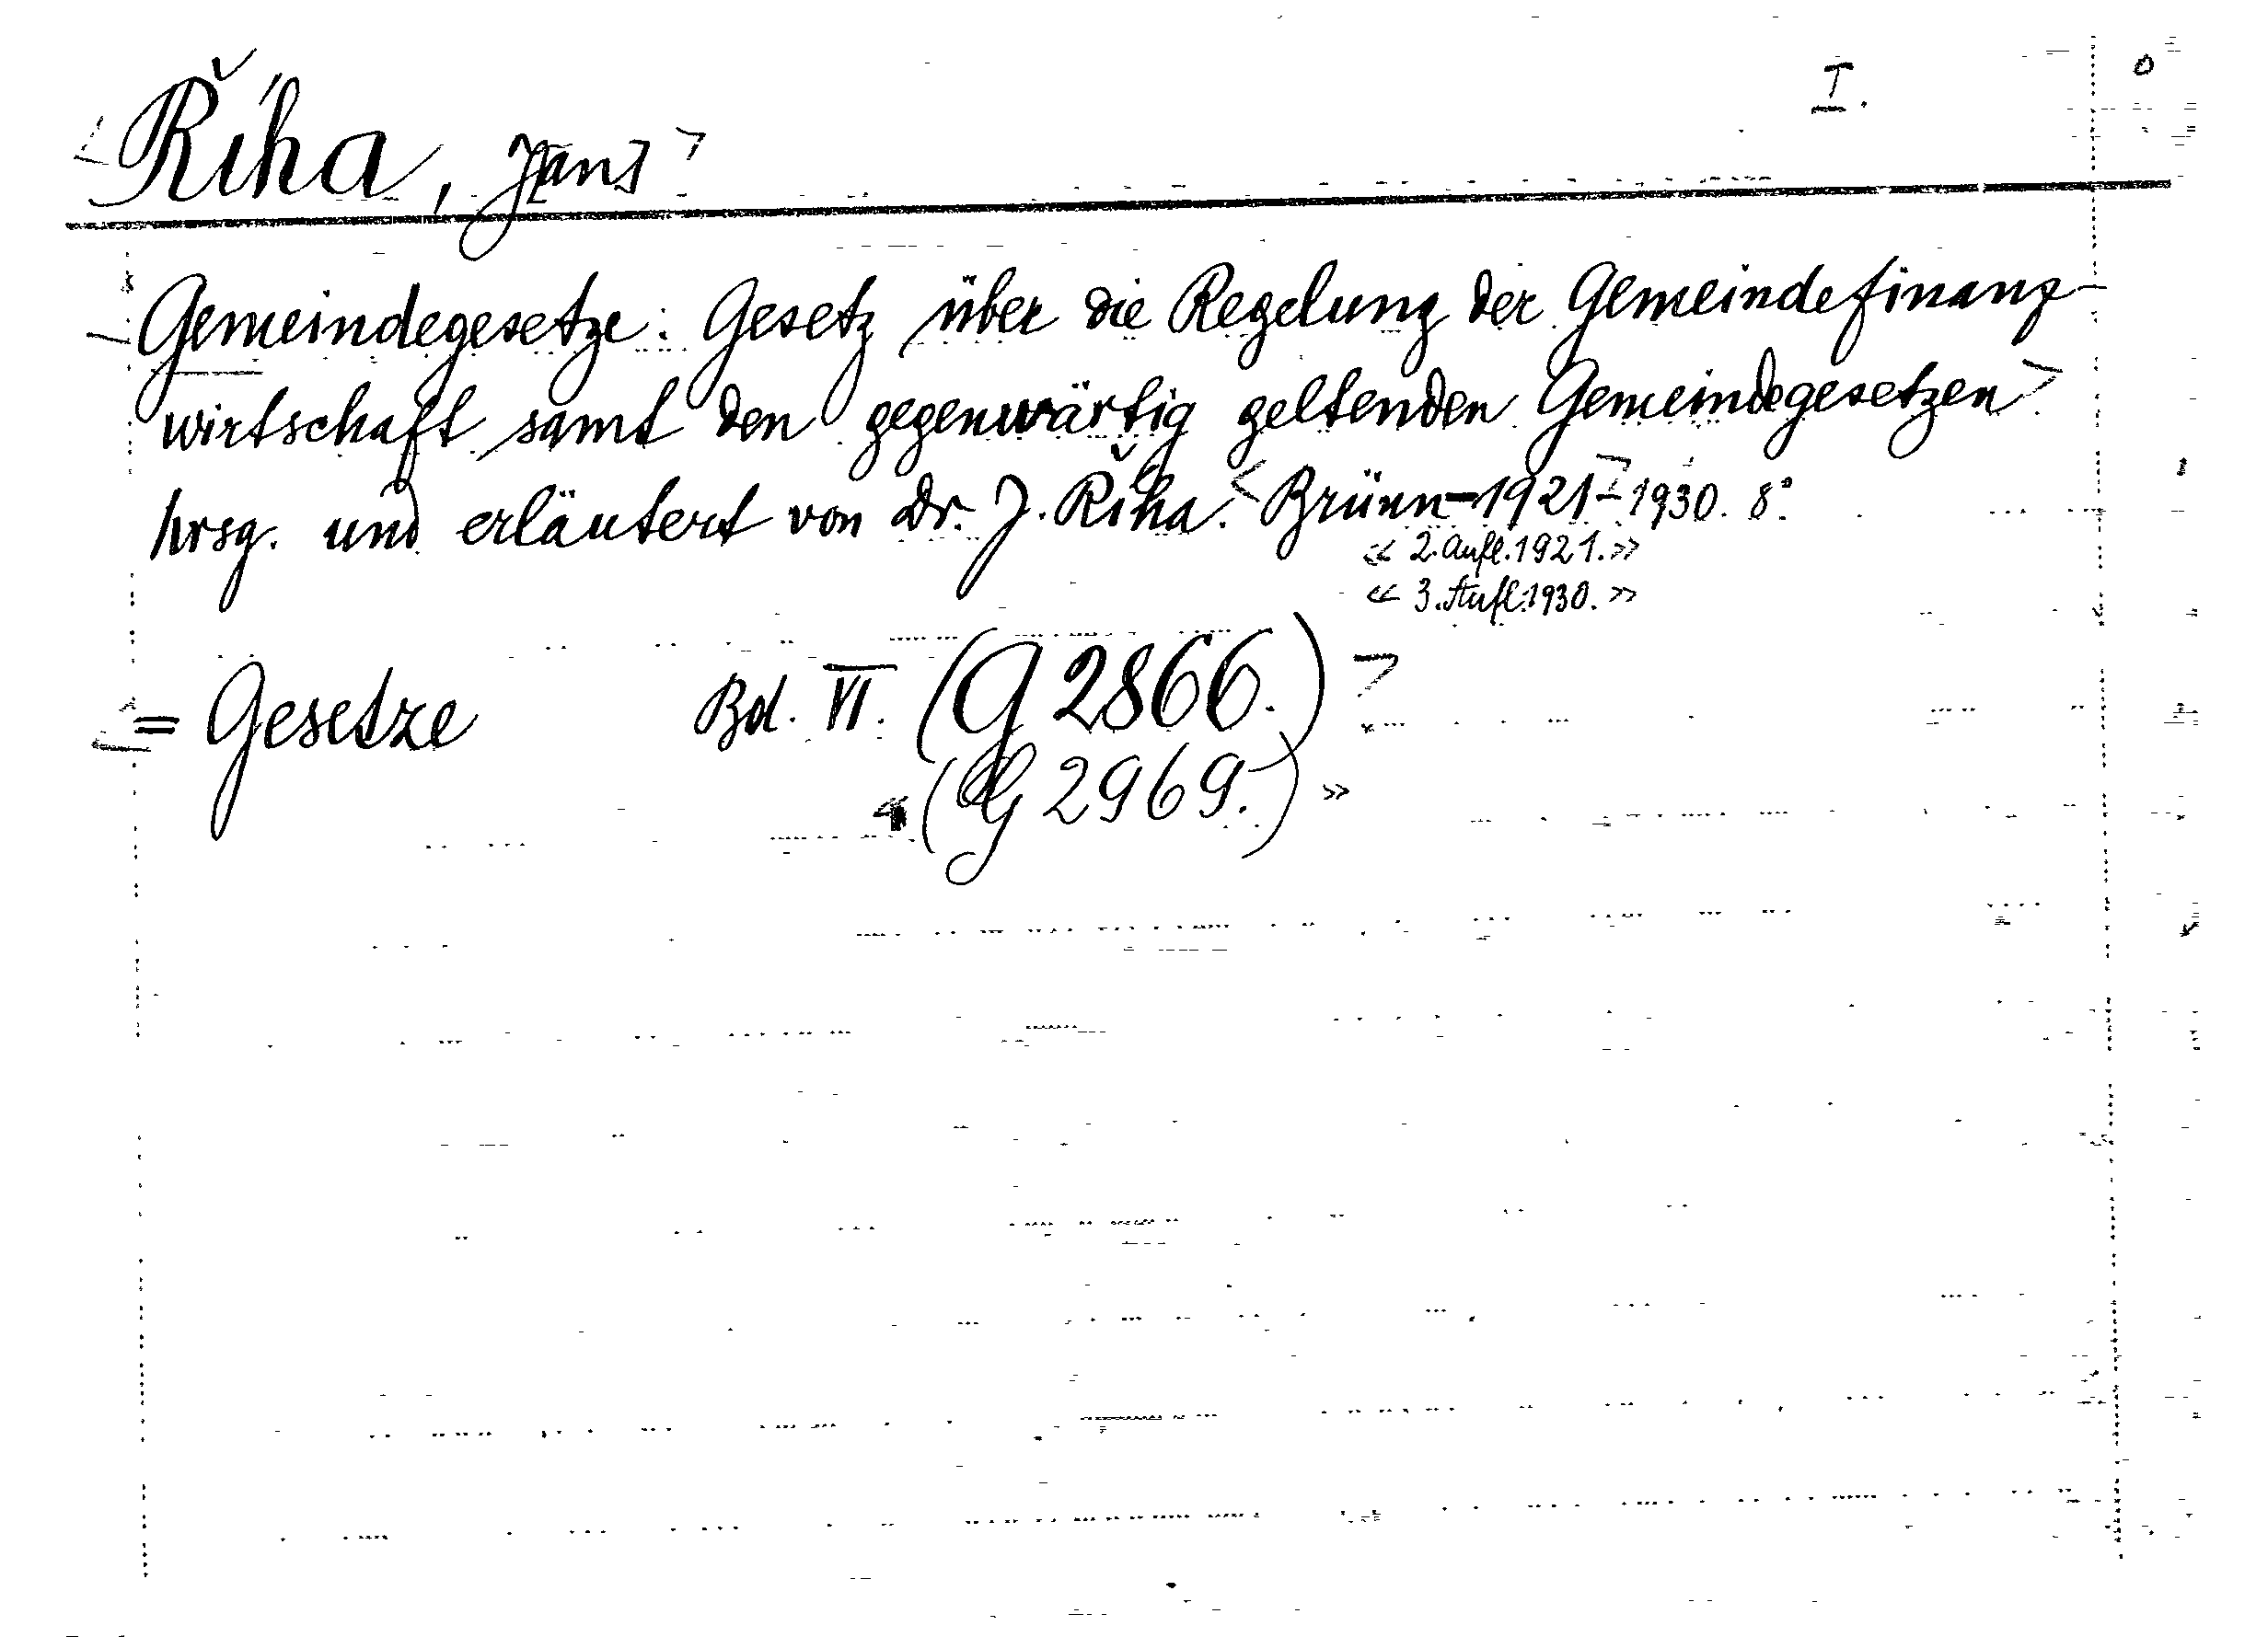 I.
<Říha, J[an]>
<Gemeindegesetze: Gesetz über die Regelung der Gemeindefinanz-
wirtschaft samt den gegenwärtig geltenden Gemeindegesetzen>
hrsg. und erläutert von Dr. J. Říha. <Brünn 1921-> 1930. 8°.
«2. Aufl. 1921.»
«3. Aufl. 1930.»
<= Gesetze Bd. VI. (G 2866.)>
«(G 2969.)»